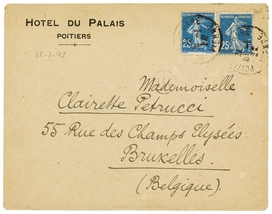 HOTEL DU PALAIS
POITIERS
25 25
Mademoiselle
Clairette Petrucci
55 Rue des Champs Elysées
Bruxelles.
(Belgique).